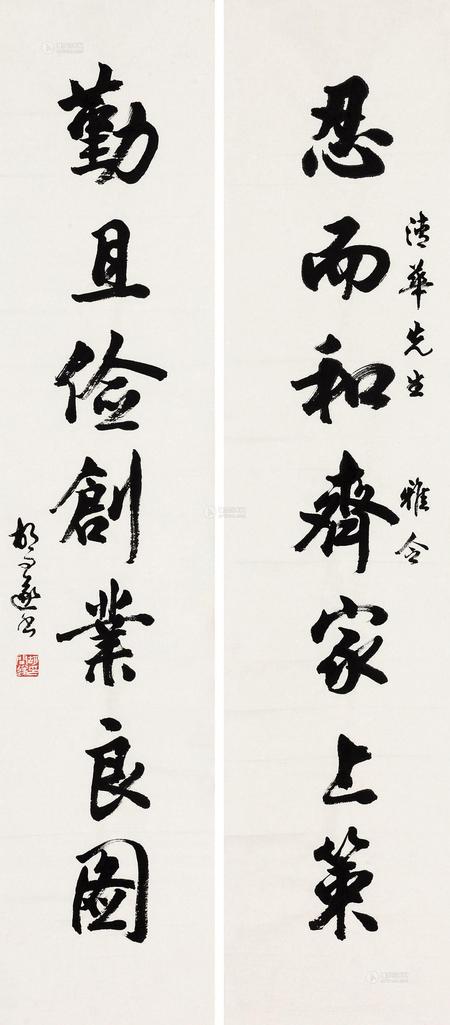 忍而和齊家上策
清華先生 雅令
勤且儉創業良圖
胡公遂書